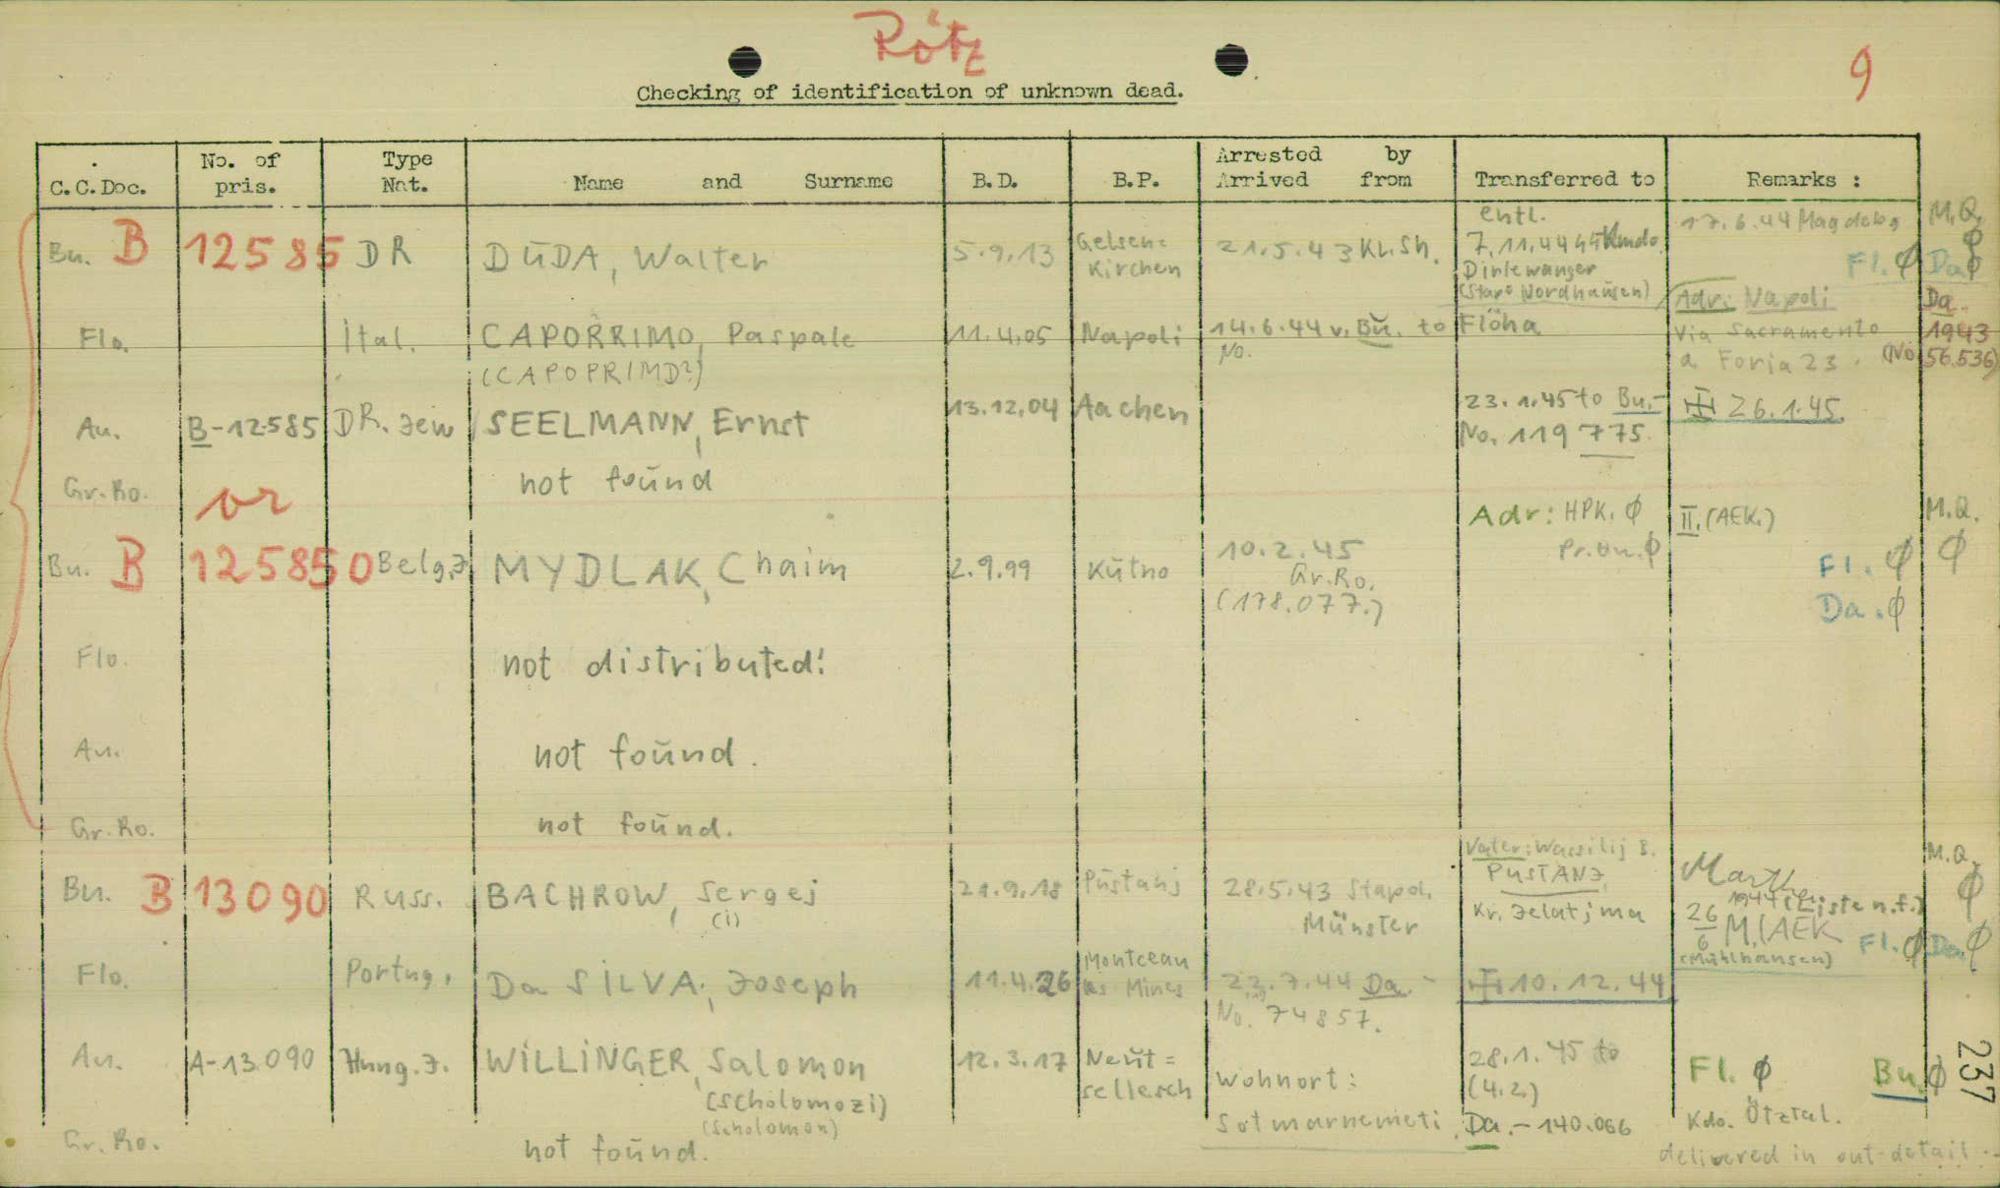 Rötz
9
Checking of identification of unknown dead.
C.C.Doc. No. of pris. Type Nat. Name and Surname B.D. B.P. Arrested by Arrived from Transferred to Remarks :
Bu. B 12585 DR DUDA, Walter 5.9.13 Gelsen= kirchen 21.5.43 KL.Sh. entl. 7.11.44 Kmdo. Dirlewanger (Stapo Nordhausen) 17.6.44 Magdebg M.Q. Ø Fl. Ø Da Ø
Flo. Ital. CAPORRIMO, Paspale 11.4.05 Napoli 14.6.44 v. Bu. to Flöha Adr: Napoli Da.
No. Via Sacramento 1943
(CAPOPRIMO?) a Foria 23. (No 56.536)
Au. B-12585 DR. Jew SEELMANN, Ernst 13.12.04 Aachen 23.1.45 to Bu.- 26.1.45.
No. 119 775.
Gr.Ro. not found
or
Adr: HPK. Ø II. (AEK.) M.Q.
Pr.Bu. Ø
Bu. B 125850 Belg.J MYDLAK, Chaim 2.9.99 Kutno 10.2.45 Fl. Ø Ø
Gr.Ro. Da. Ø
(178.077.)
Flo. not distributed!
Au. not found.
Gr.Ro. not found.
Vater: Wassilij B. M.Q.
Bu. B 13090 Russ. BACHROW, Sergej 21.9.18 Pustanj 28.5.43 Stapol. PUSTANJ Ø
(i) Münster Kr. Jelatjma 1944 (Liste n.f.)
26/6 M.(AEK Fl. Ø Da. Ø
(Mühlhausen)
Flo. Portug. Da SILVA, Joseph 11.4.26 Montceau les Mines 22.7.44 Da.- 10.12.44
No. 74857.
Au. A-13090 Hung.J. WILLINGER, Salomon 12.3.17 Neut= sellesch Wohnort: 28.1.45 to Fl. Ø Bu. Ø 237
(Scholomozi) (4.2.)
(Scholomon) Sotmarnemeti Da.-140.066 Kdo. Ötztal.
Gr.Ro. not found. delivered in out-detail.